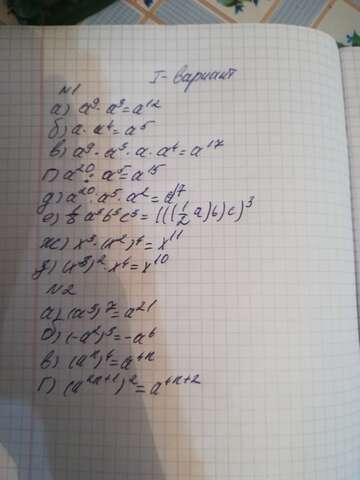 I-вариант
№1
а) a⁹ · a³ = a¹²
б) a · a⁴ = a⁵
в) a⁹ · a³ · a · a⁴ = a¹⁷
г) a²⁰ : a⁵ = a¹⁵
д) a²⁰ : a⁵ · a² = a¹⁷
е) 1/8 a³b³c³ = (((1/2 a)b)c)³
ж) x³ · (x²)⁴ = x¹¹
з) (x³)² · x⁴ = x¹⁰
№2
а) (a³)⁷ = a²¹
б) (-a²)³ = -a⁶
в) (aⁿ)⁴ = a⁴ⁿ
г) (a²ⁿ⁺¹)² = a⁴ⁿ⁺²